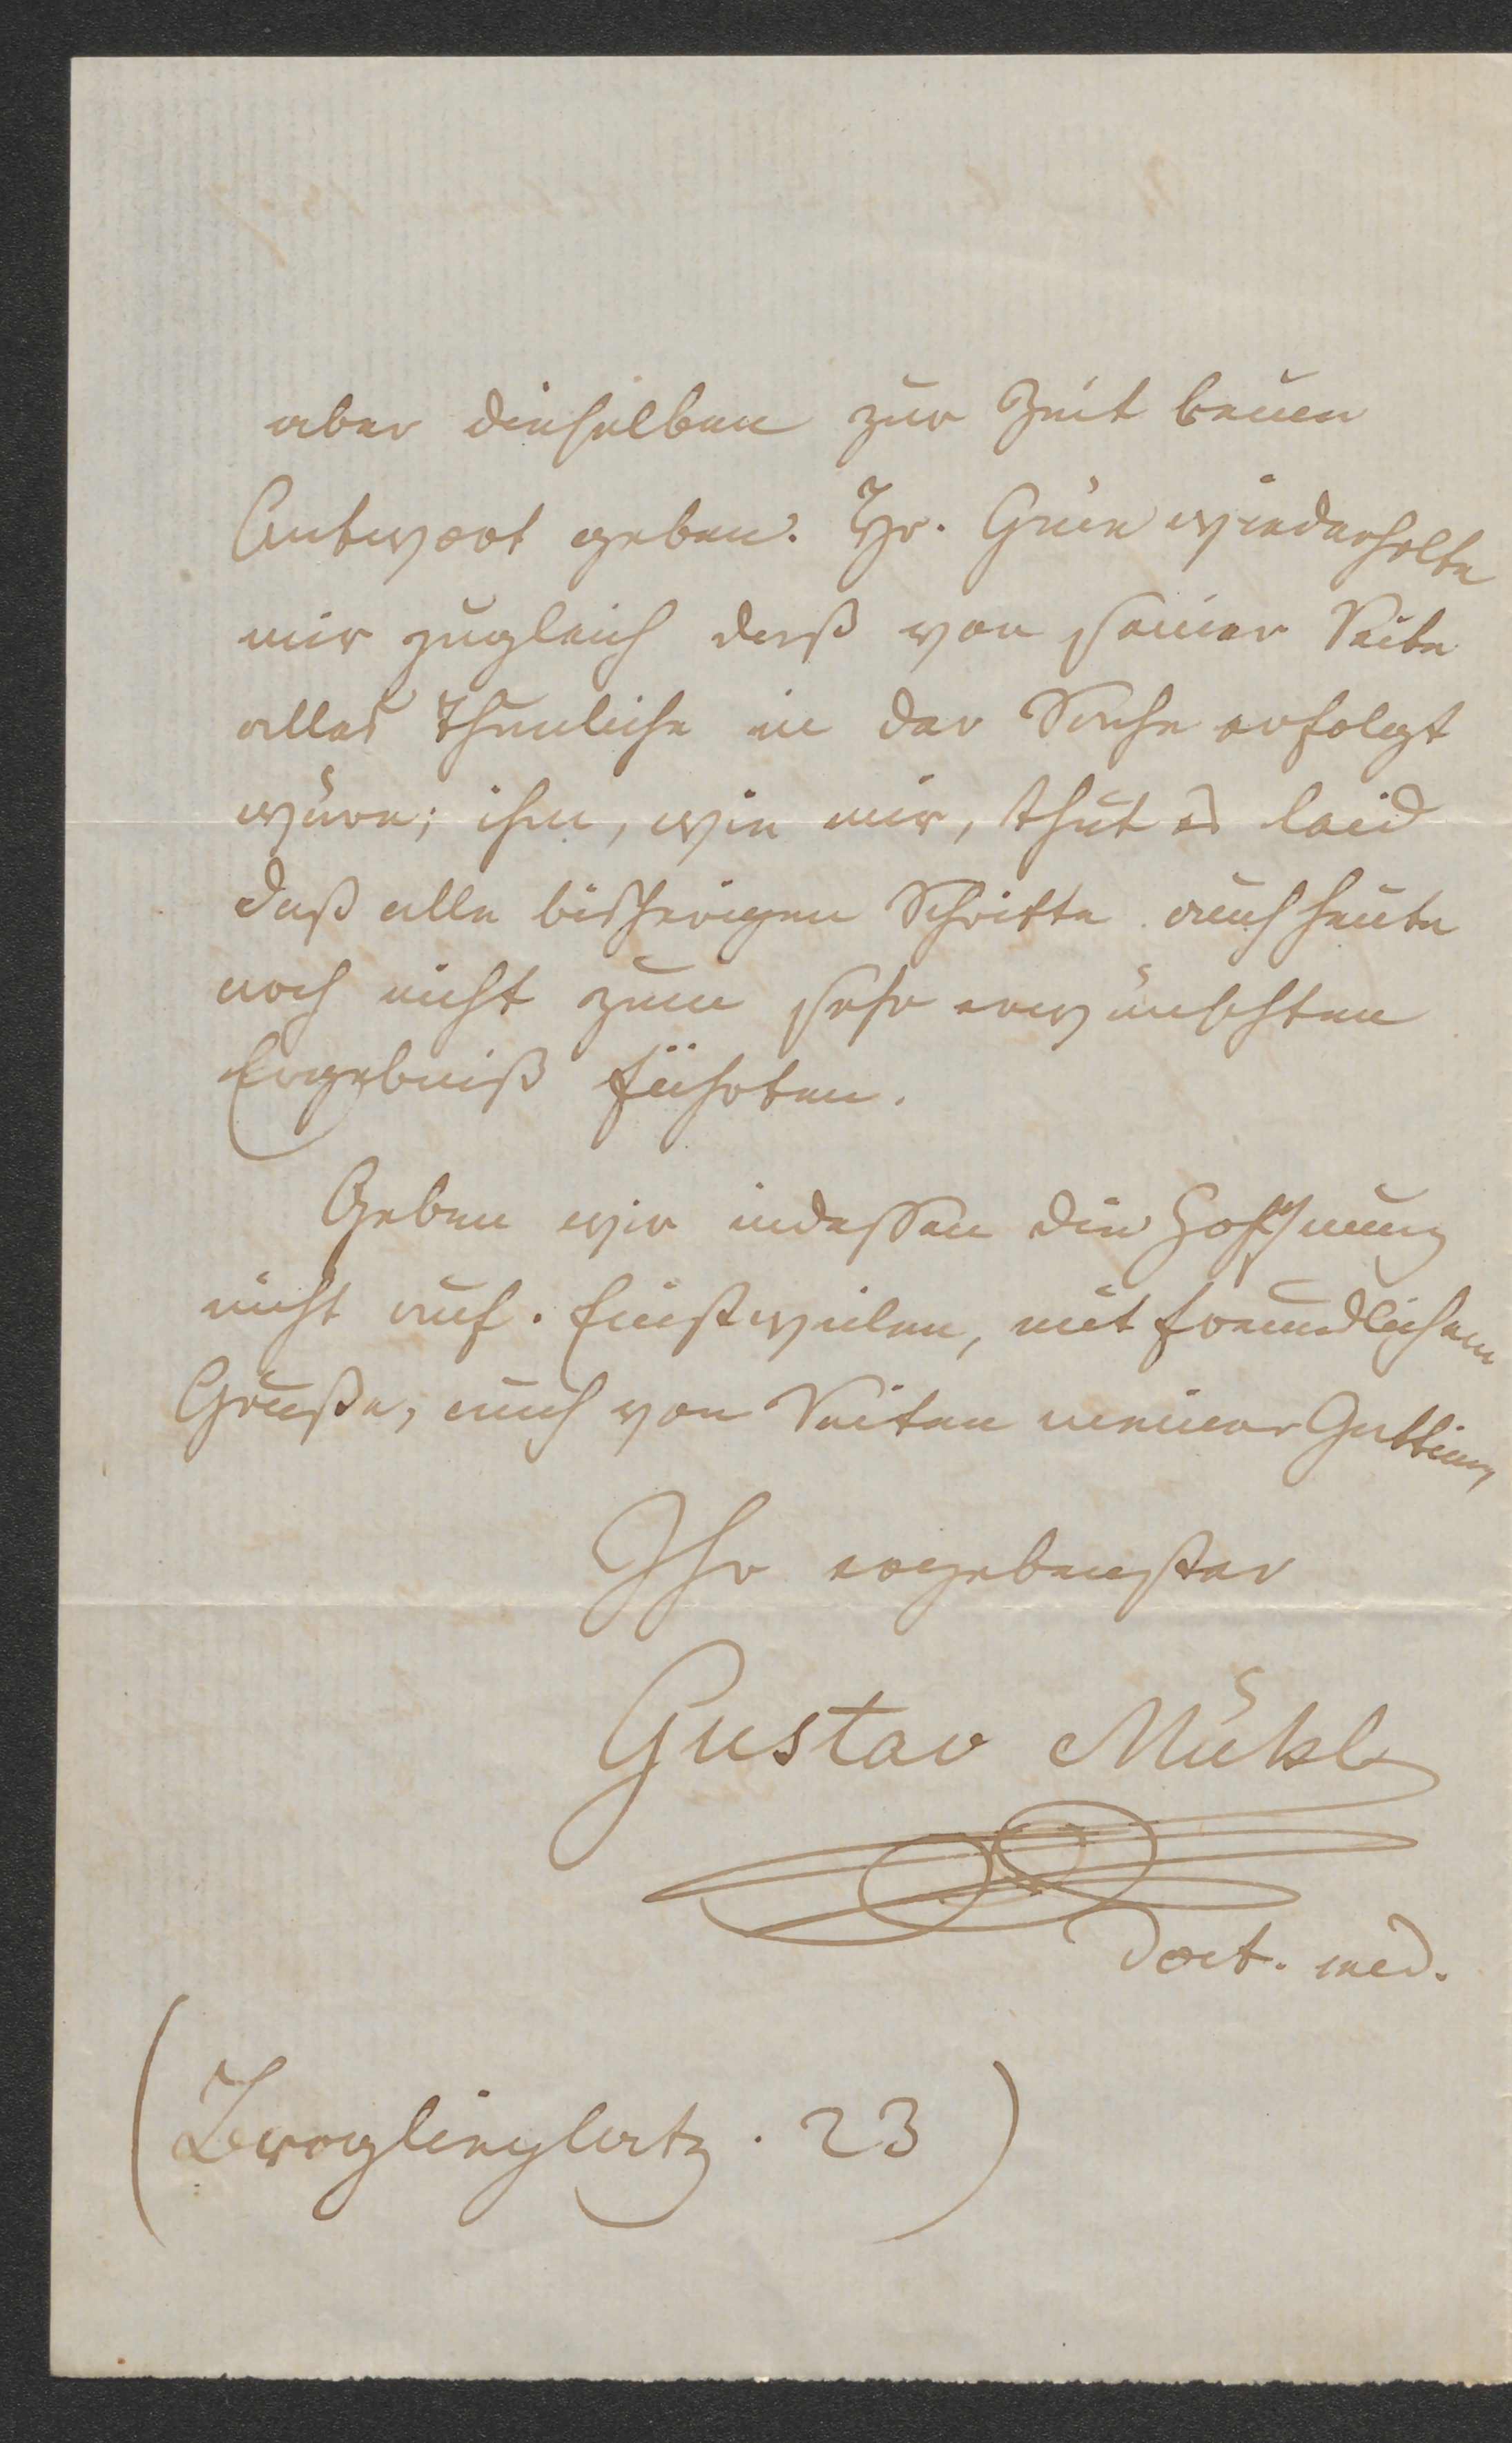 aber dieselben zur Zeit keine
Antwort geben. Hr. Grün wiederholte
mir zugleich daß von seiner Seite
alles Thunliche in der Sache erfolgt
wäre; ihm, wie mir, thut es leid
daß alle bisherigen Schritte auch heute
noch nicht zum sehr erwünschten
Ergebniß führten.
Geben wir indessen die Hoffnung
nicht auf. Einstweilen, mit freundlichem
Gruße, auch von Seiten meiner Gattin,
Ihr ergebenster
Gustav Mühl
Doct. med.
(Broglieplatz. 23)